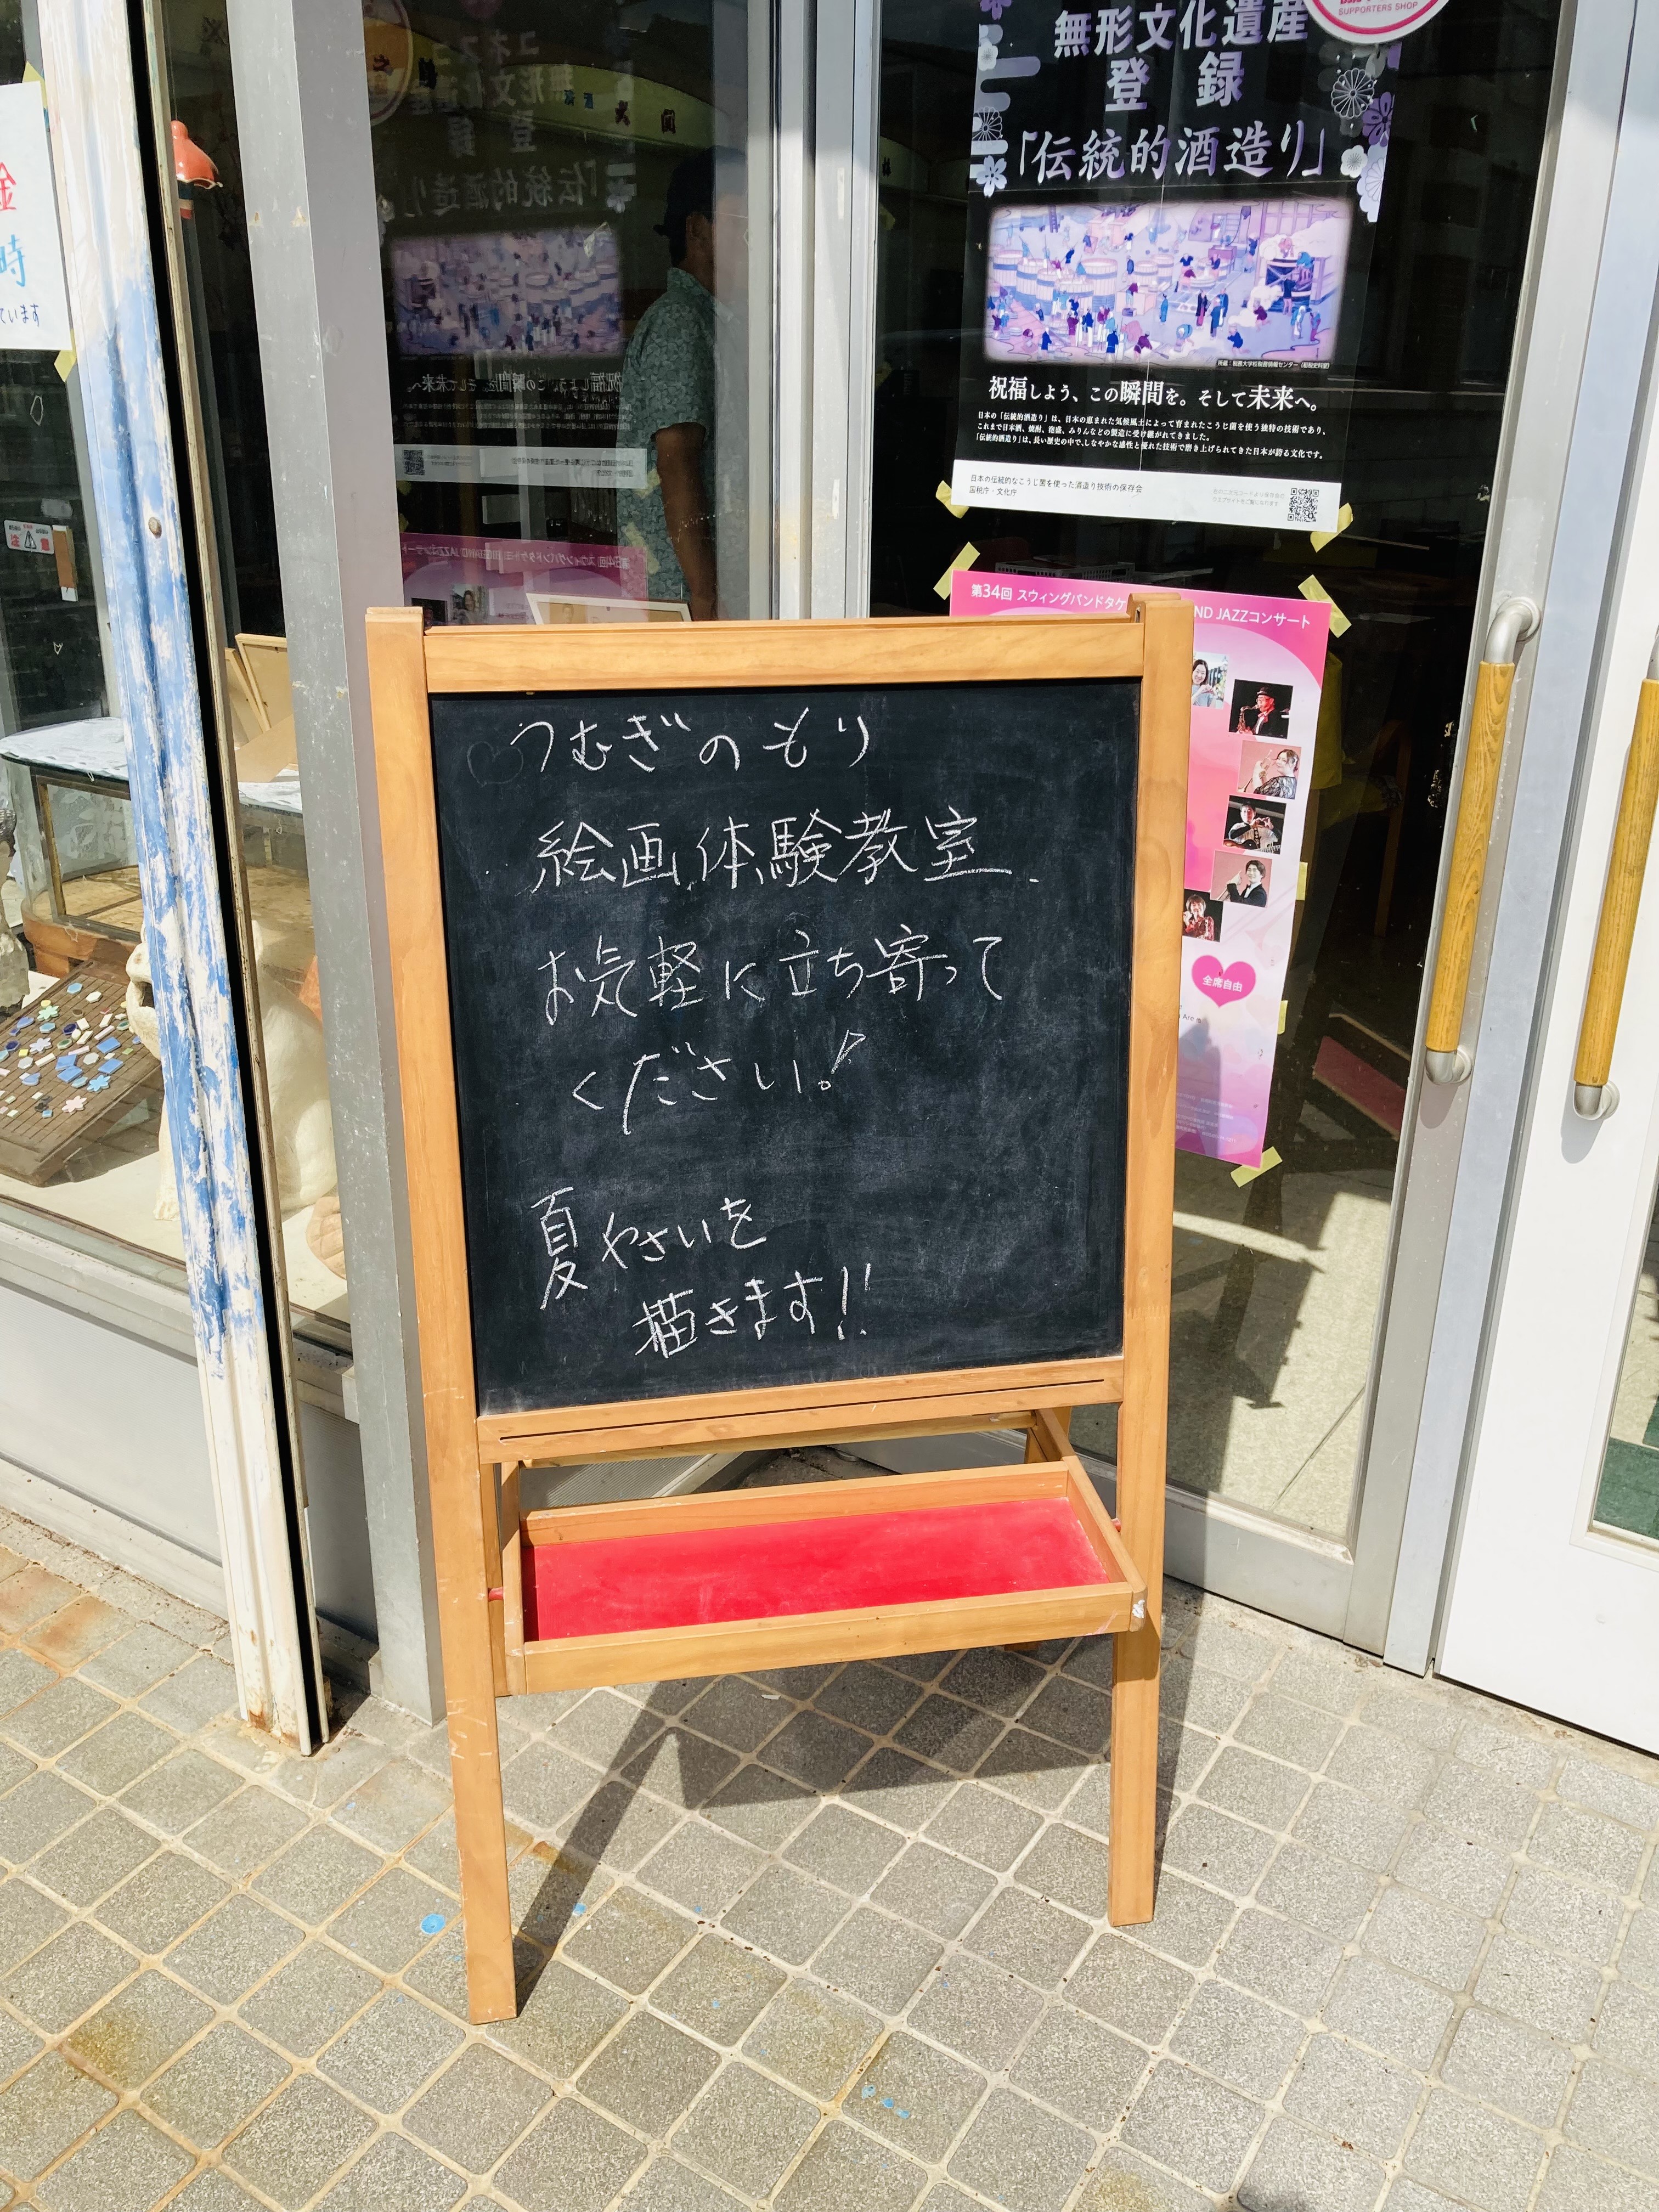 うむぎのもり
絵画体験教室
お気軽に立ち寄って
ください!
夏やさいを
描きます!!
SUPPORTERS SHOP
無形文化遺産
登録
「伝統的酒造り」
祝福しよう、この瞬間を。そして未来へ。
日本の「伝統的酒造り」は、日本の恵まれた気候風土によって育まれたこうじ菌を使う独特の技術であり、
これまで日本酒、焼酎、泡盛、みりんなどの製造に受け継がれてきました。
「伝統的酒造り」は、長い歴史の中で、しなやかな感性と優れた技術で磨き上げられてきた日本が誇る文化です。
日本の伝統的なこうじ菌を使った酒造り技術の保存会
国税庁・文化庁
第34回 スウィングバンドタケ
ND JAZZコンサート
全席自由
金
時
ています
注意